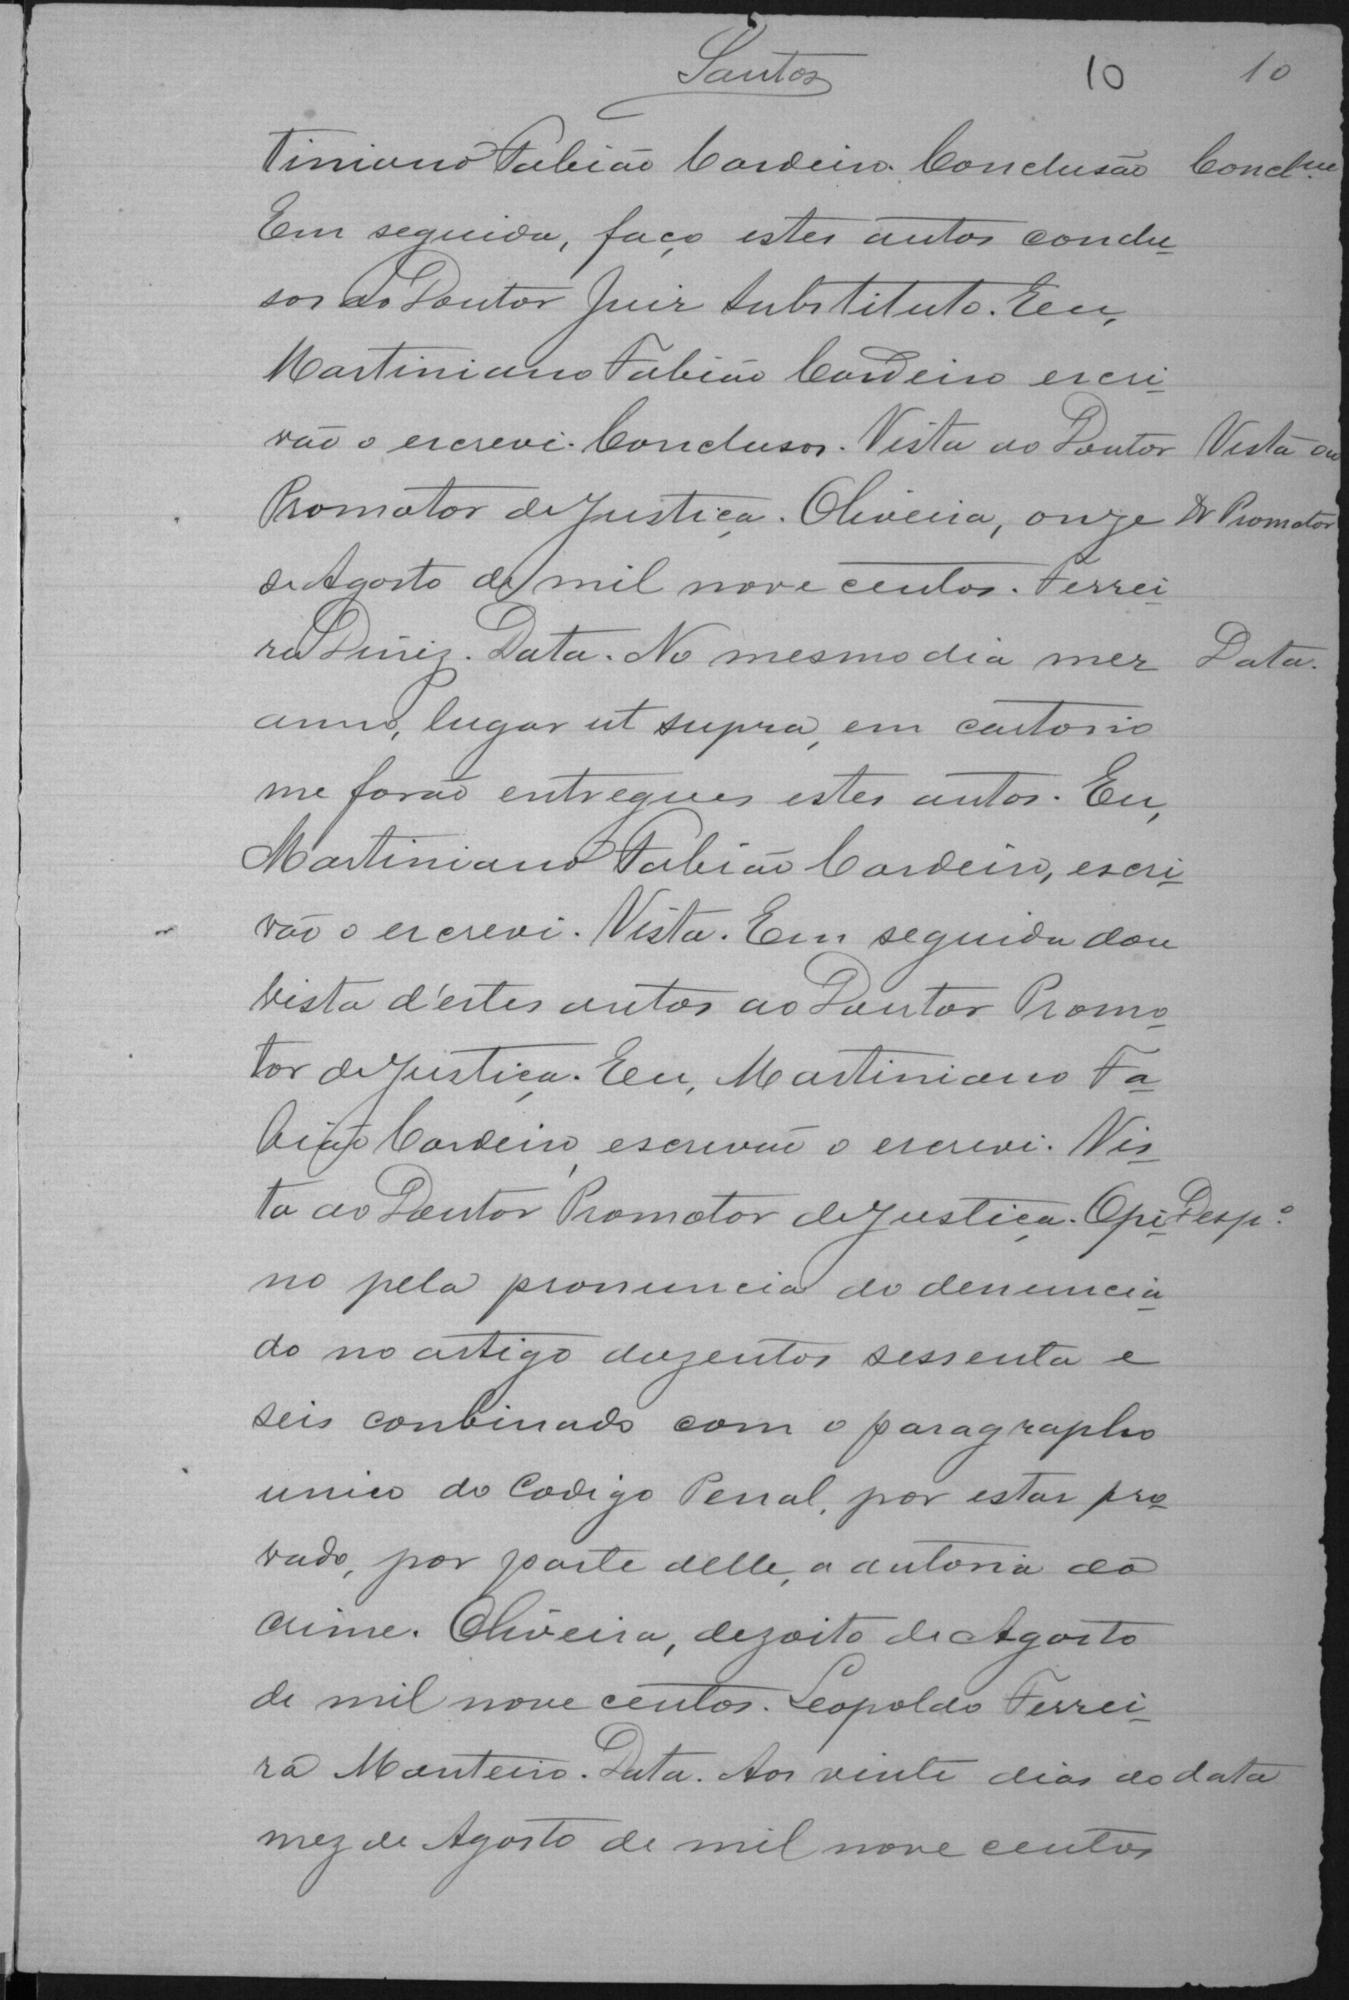 Santos 10 10
tiniano Fabião Cordeiro. Conclusão Concl
Em seguida, faço estes autos conclu-
sos ao Doutor Juiz substituto. Eu,
Martiniano Fabião Cordeiro escri-
vão o escrevi. Conclusos. Vista ao Doutor Vista ao
Promotor de Justiça. Oliveira, onze Dr Promotor
de Agosto de mil nove centos. Ferrei-
ra Diniz. Data. No mesmo dia mez Data.
anno, lugar ut supra, em cartorio
me forão entregues estes autos. Eu,
Martiniano Fabião Cordeiro, escri-
vão o escrevi. Vista. Em seguida dou
vista d'estes autos ao Doutor Promo-
tor de Justiça. Eu, Martiniano Fa-
bião Cordeiro, escrivão o escrevi. Vis-
ta ao Doutor Promotor de Justiça. Opi- Desp.º
no pela pronuncia do denuncia-
do no artigo duzentos sessenta e
seis conbinado com o paragrapho
unico do Codigo Penal, por estar pro-
vado, por parte delle, a autoria do
crime. Oliveira, dezoito de Agosto
de mil nove centos. Leopoldo Ferrei-
ra Monteiro. Data. Aos vinte dias do data
mez de Agosto de mil nove centos